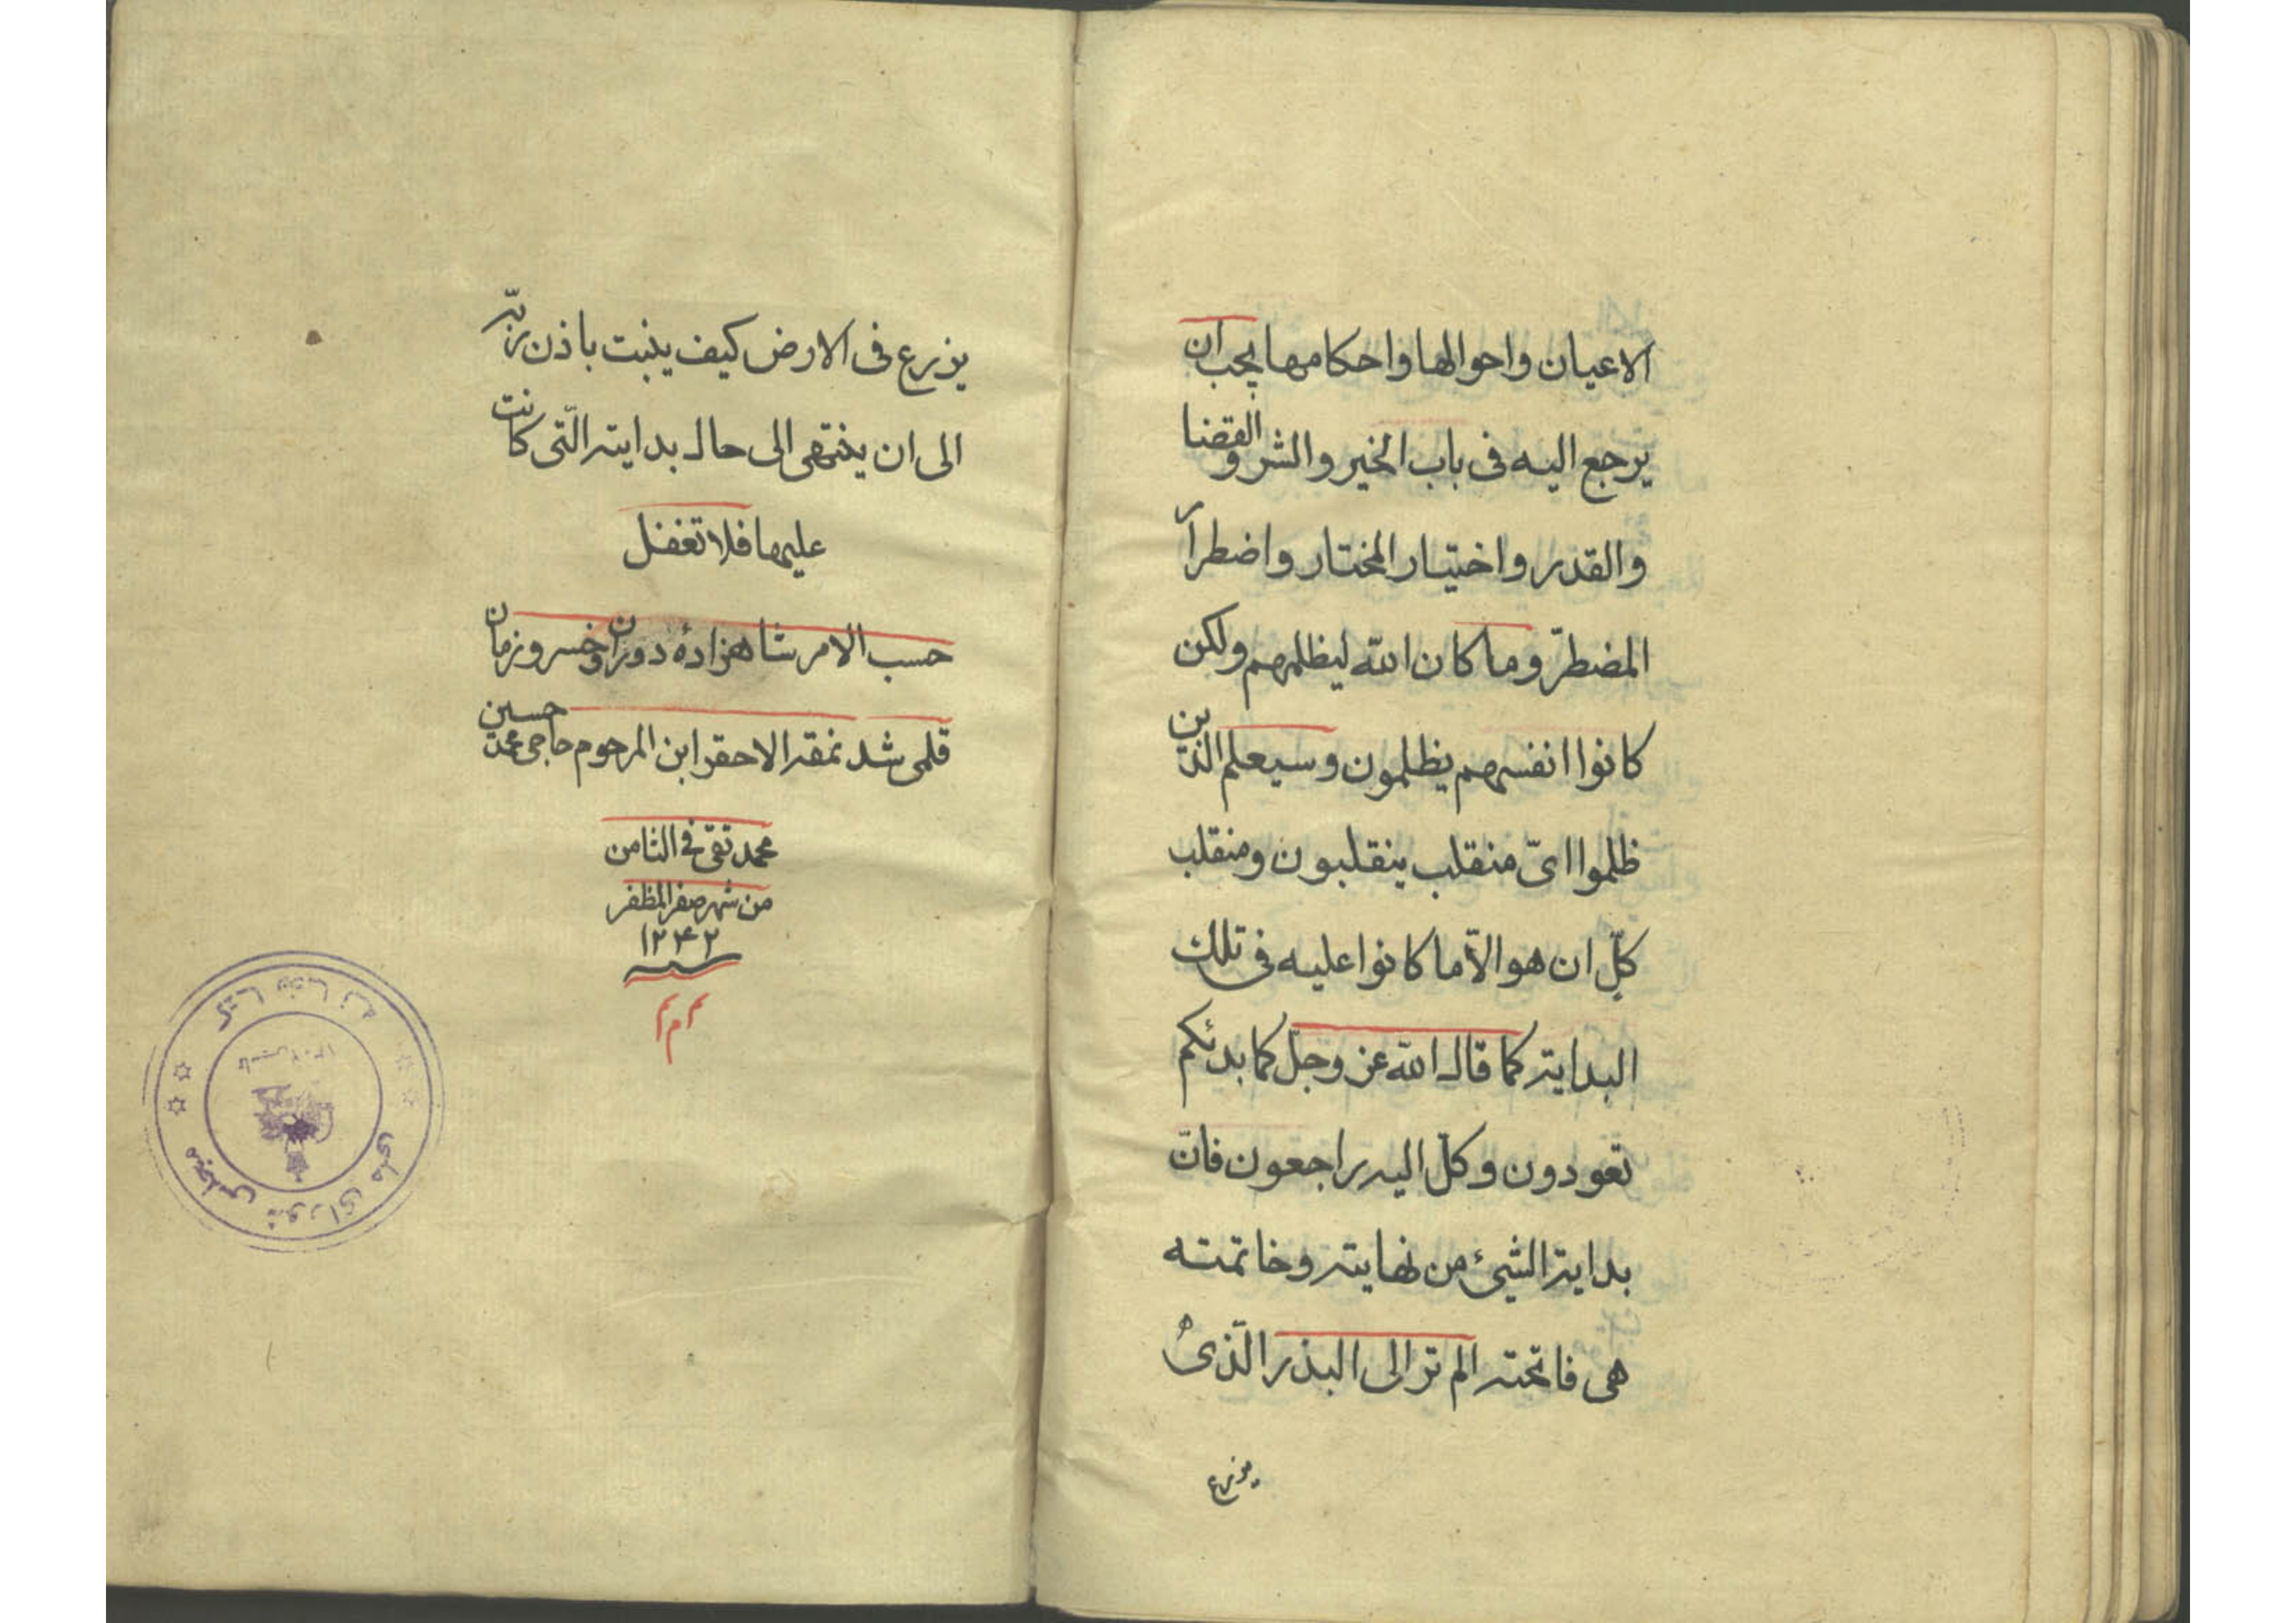 الاعیان واحوالها واحکامها یجب ان
یرجع الیه فی باب الخیر والشر والقضا
والقدر واختیار المختار واضطرار
المضطرّ وما کان الله لیظلمهم ولکن
کانوا انفسهم یظلمون وسیعلم الذین
ظلموا ایّ منقلب ینقلبون ومنقلب
کلّ ان هو الّا ما کانوا علیه فی تلک
البدایته کما قال الله عز وجلّ کما بدئکم
تعودون وکلّ الیه راجعون فانّ
بدایة الشیئ من نهایته وخاتمته
هی فاتحته الم تر الی البذر الّذی
یزرع
یزرع فی الارض کیف ینبت باذن ربّه
الی ان ینتهی الی حال بدایته الّتی کانت
علیها فلا تغفل
حسب الامر شاهزادهٔ دوران وخسرو زمان
قلمی شد نمقه الاحقر ابن المرحوم حاجی محمد حسین
محمد تقی فی الثامن
من شهر صفر المظفر
۱۲۴۲
سنه
م م م
کتابخانه
مجلس شورای ملی